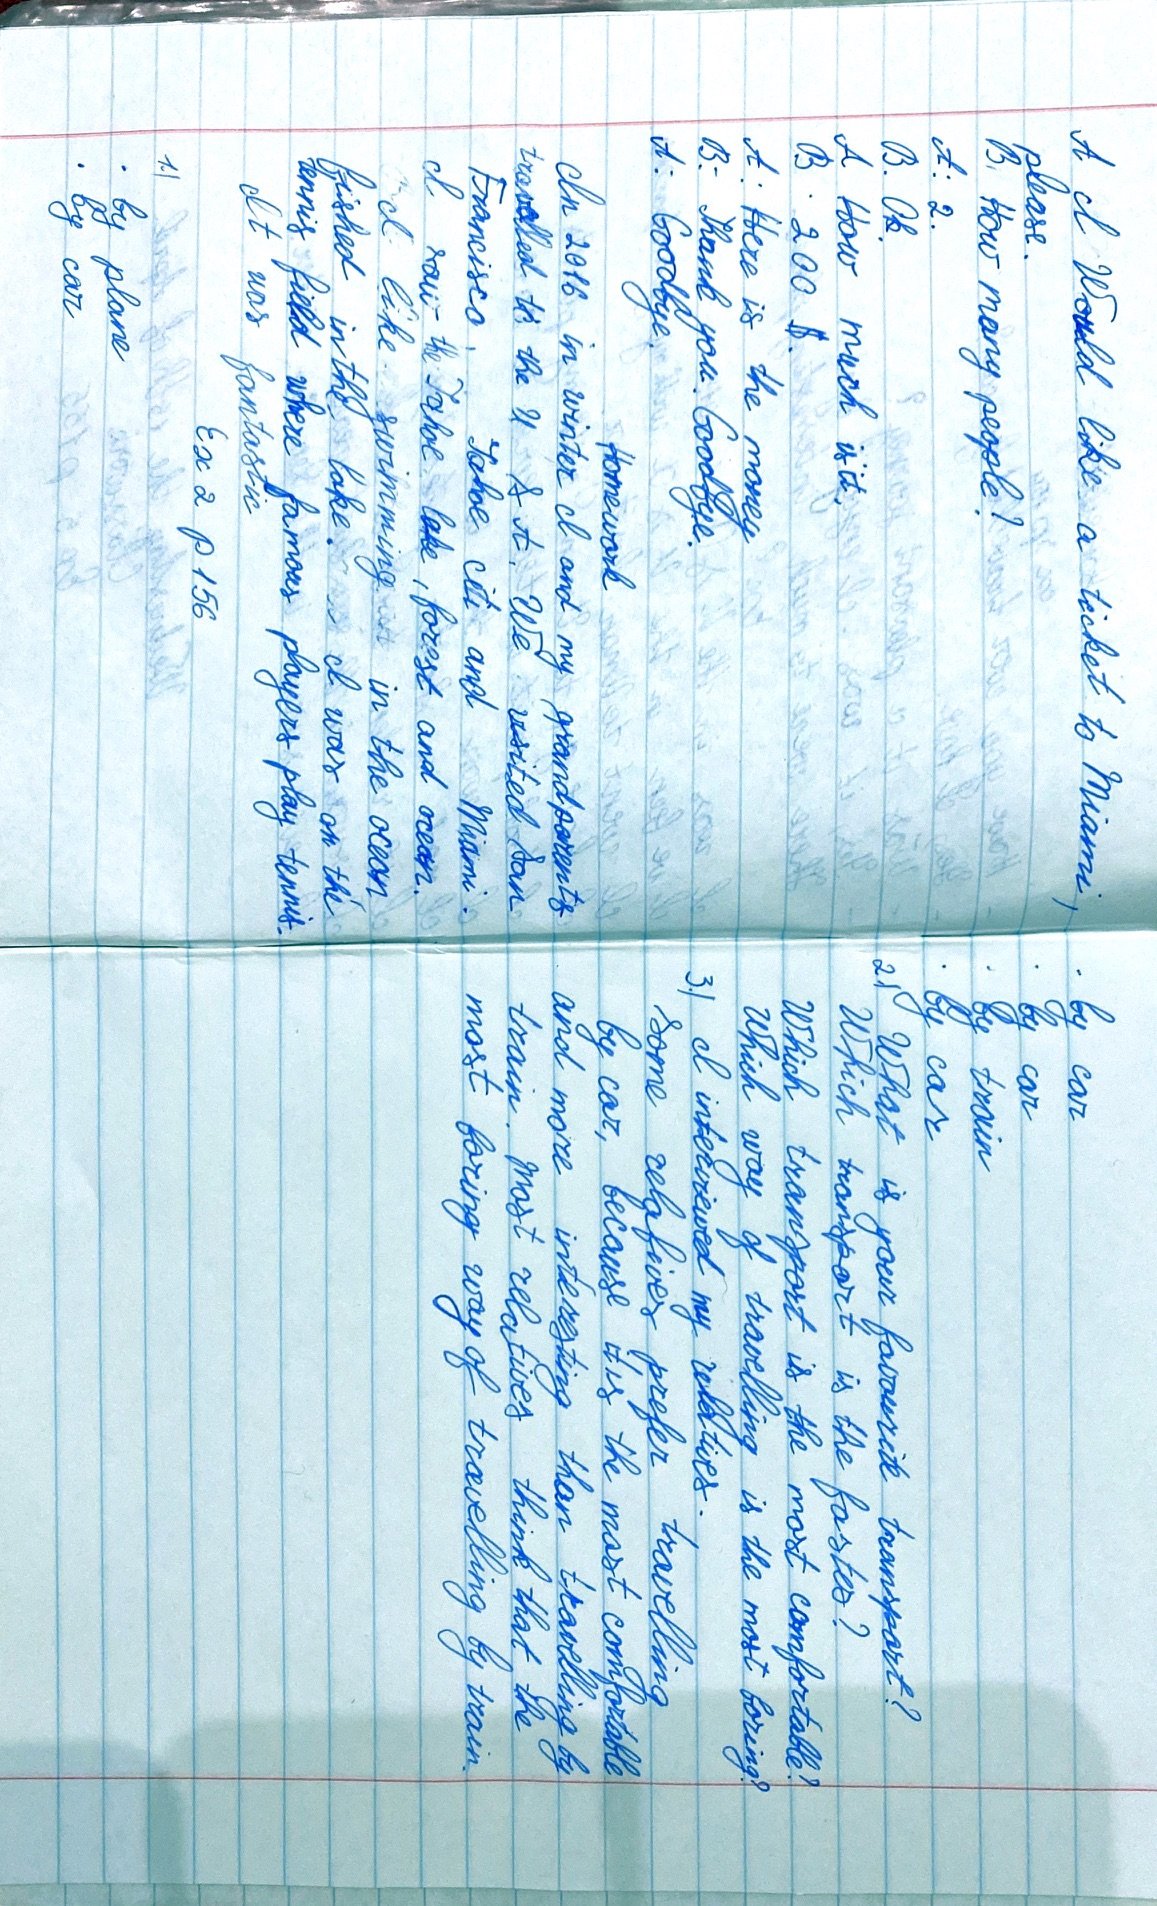 A I Would like a ticket to Miami,
please.
B. How many people?
A: 2.
B. Ok.
A How much is it,
B. 200 $.
A: Here is the money
B: Thank you. Goodbye.
A: Goodbye.
Homework
In 2016 in winter I and my grandparents
travelled to the U S A. We visited San
Francisco, Tahoe citi and Miami.
I saw the Tahoe lake, forest and ocean.
I like swimming in the ocean
fished in the lake. I was on the
tennis field where famous players play tennis.
It was fantastic
Ex 2 p 156
1)
· by plane
· by car
· by car
· by car
· by train
· by car
2) What is your favourite transport?
Which transport is the faster?
Which transport is the most comfortable?
Which way of travelling is the most boring?
3) I interviewed my relatives.
Some relatives prefer travelling
by car, because it is the most comfortable
and more interesting than travelling by
train. Most relatives think that the
most boring way of travelling by train.